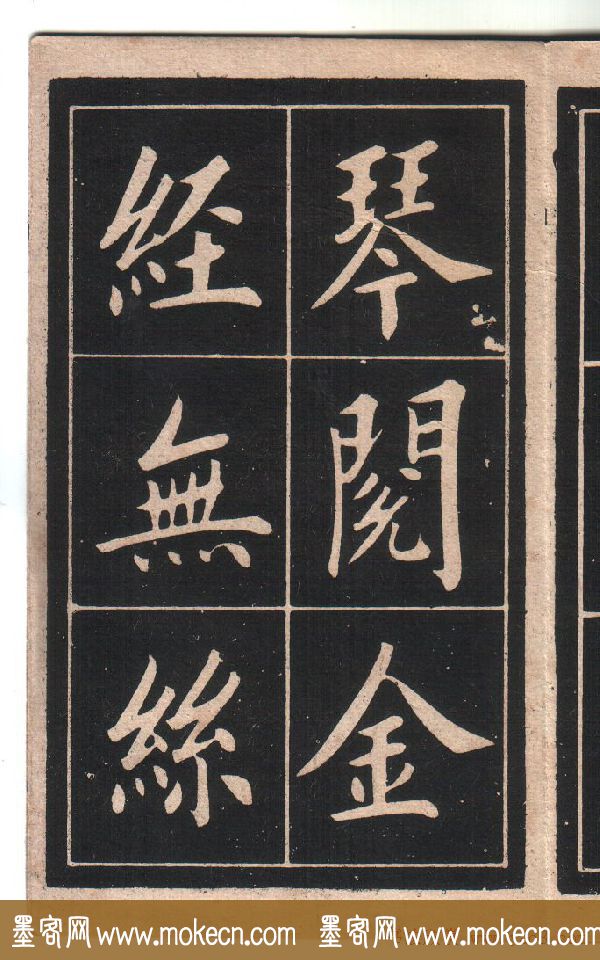 琴閱金
経無絲
墨客网 www.mokecn.com 墨客网 www.mokecn.com